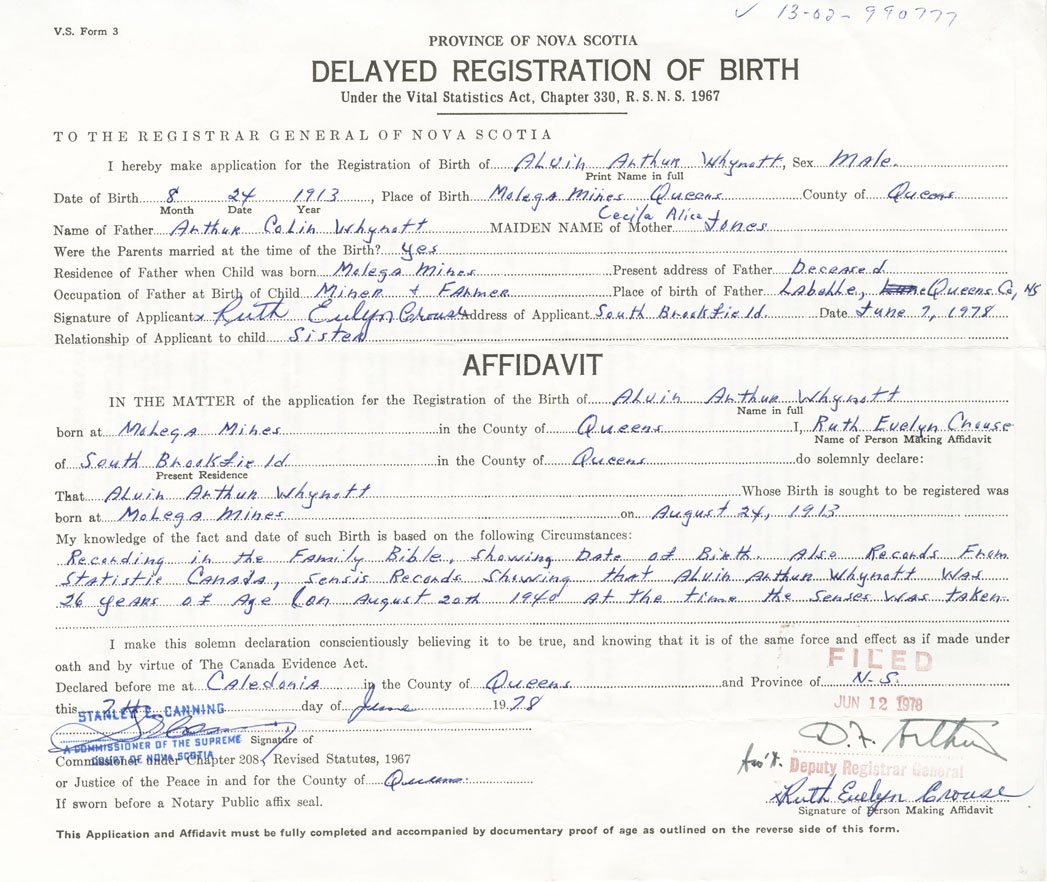 ✓ 13-02-990777
V.S. Form 3
PROVINCE OF NOVA SCOTIA
DELAYED REGISTRATION OF BIRTH
Under the Vital Statistics Act, Chapter 330, R.S.N.S. 1967
TO THE REGISTRAR GENERAL OF NOVA SCOTIA
I hereby make application for the Registration of Birth of Alvin Arthur Whynott, Sex Male.
Print Name in full
Date of Birth 8 24 1913, Place of Birth Molega Mines Queens County of Queens
Month Date Year
Cecila Alice
Name of Father Arthur Colin Whynott MAIDEN NAME of Mother Jones
Were the Parents married at the time of the Birth? yes
Residence of Father when Child was born Molega Mines Present address of Father Deceased
Occupation of Father at Birth of Child Miner & Farmer Place of birth of Father Labelle, Queens Co, NS
Signature of Applicant x Ruth Evelyn Crouse Address of Applicant South Brookfield Date June 7, 1978
Relationship of Applicant to child Sister
AFFIDAVIT
IN THE MATTER of the application for the Registration of the Birth of Alvin Arthur Whynott
Name in full
born at Molega Mines in the County of Queens I, Ruth Evelyn Crouse
Name of Person Making Affidavit
of South Brookfield in the County of Queens do solemnly declare:
Present Residence
That Alvin Arthur Whynott Whose Birth is sought to be registered was
born at Molega Mines on August 24, 1913
My knowledge of the fact and date of such Birth is based on the following Circumstances:
Recording in the Family Bible, Showing Date of Birth. Also Records From
Statistic Canada, Sensis Records Showing that Alvin Arthur Whynott Was
26 years of Age (on August 20th 1940 At the time the Senses Was taken
I make this solemn declaration conscientiously believing it to be true, and knowing that it is of the same force and effect as if made under
oath and by virtue of The Canada Evidence Act.
FILED
Declared before me at Caledonia in the County of Queens and Province of N.S.
JUN 12 1978
this 7th day of June 1978
STANLEY E. CANNING
A COMMISSIONER OF THE SUPREME
COURT OF NOVA SCOTIA
Signature of
Commissioner under Chapter 208, Revised Statutes, 1967
or Justice of the Peace in and for the County of Queens
If sworn before a Notary Public affix seal.
Ass't. Deputy Registrar General
x Ruth Evelyn Crouse
Signature of Person Making Affidavit
This Application and Affidavit must be fully completed and accompanied by documentary proof of age as outlined on the reverse side of this form.